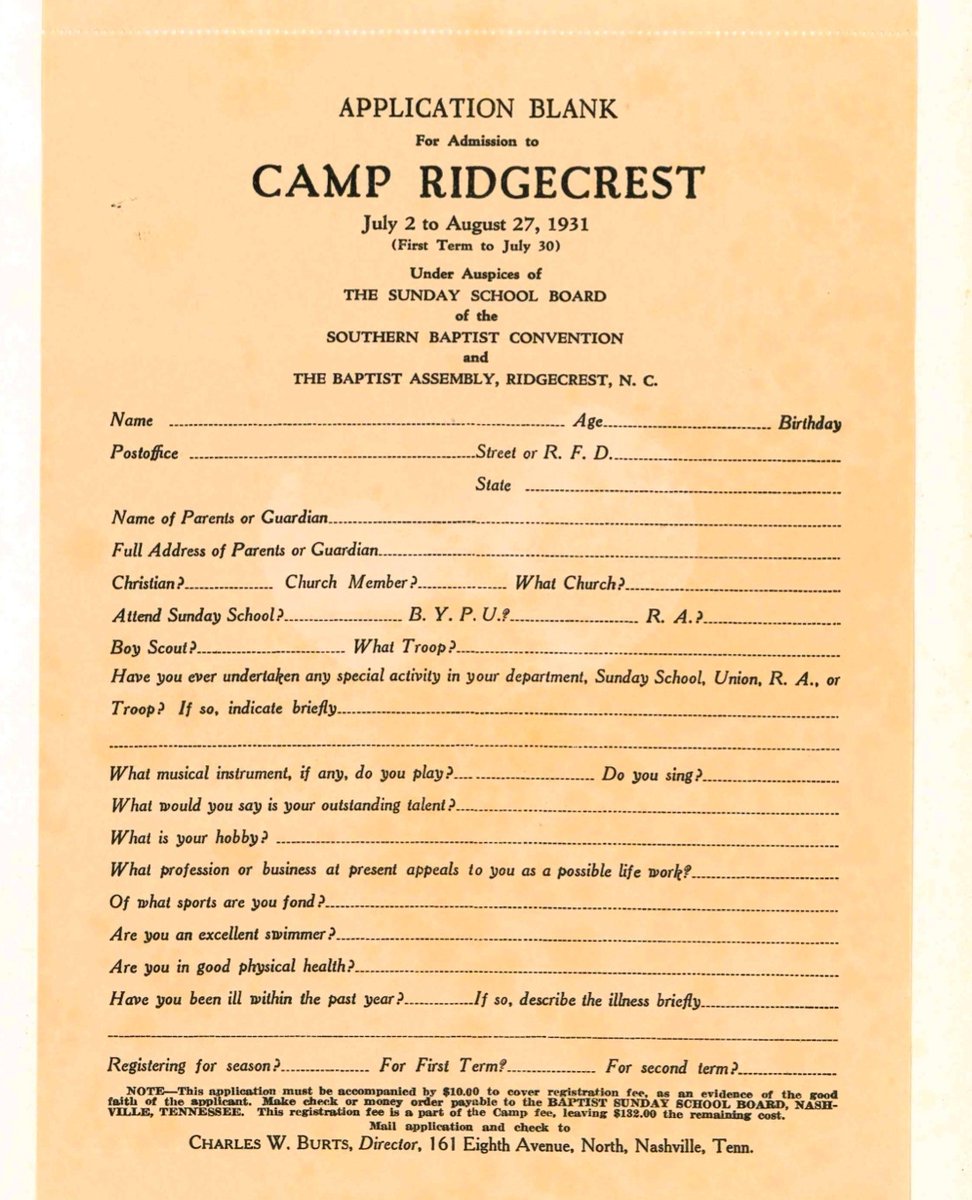 APPLICATION BLANK
For Admission to
CAMP RIDGECREST
July 2 to August 27, 1931
(First Term to July 30)
Under Auspices of
THE SUNDAY SCHOOL BOARD
of the
SOUTHERN BAPTIST CONVENTION
and
THE BAPTIST ASSEMBLY, RIDGECREST, N. C.
Name Age Birthday
Postoffice Street or R. F. D.
State
Name of Parents or Guardian
Full Address of Parents or Guardian
Christian? Church Member? What Church?
Attend Sunday School? B. Y. P. U.? R. A.?
Boy Scout? What Troop?
Have you ever undertaken any special activity in your department, Sunday School, Union, R. A., or
Troop? If so, indicate briefly
What musical instrument, if any, do you play? Do you sing?
What would you say is your outstanding talent?
What is your hobby?
What profession or business at present appeals to you as a possible life work?
Of what sports are you fond?
Are you an excellent swimmer?
Are you in good physical health?
Have you been ill within the past year? If so, describe the illness briefly
Registering for season? For First Term? For second term?
NOTE—This application must be accompanied by $10.00 to cover registration fee, as an evidence of the good
faith of the applicant. Make check or money order payable to the BAPTIST SUNDAY SCHOOL BOARD, NASH-
VILLE, TENNESSEE. This registration fee is a part of the Camp fee, leaving $132.00 the remaining cost.
Mail application and check to
CHARLES W. BURTS, Director, 161 Eighth Avenue, North, Nashville, Tenn.